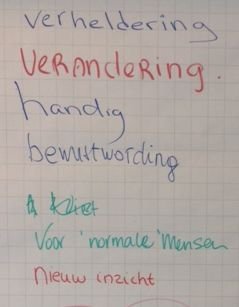 verheldering
VERANDERING.
handig
bewustwording
Voor 'normale' mensen
nieuw inzicht